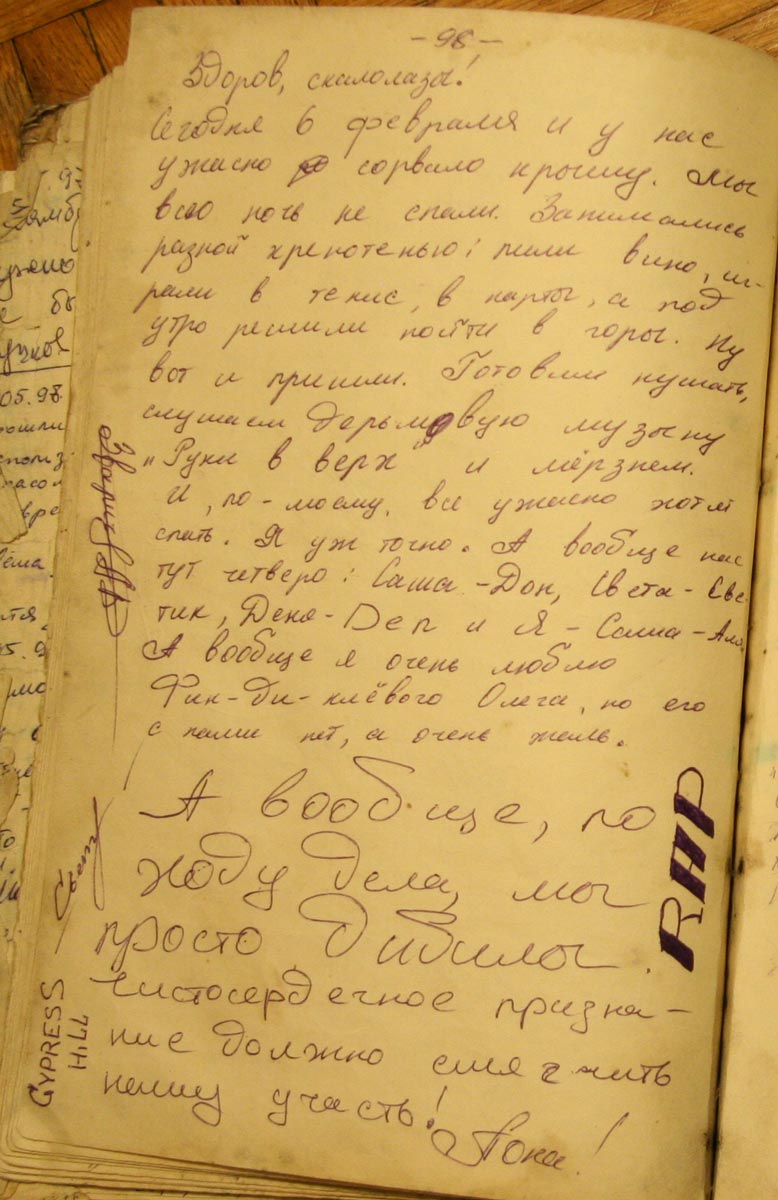 -98-
Здоров, скалолазы!
Сегодня 6 февраля и у нас
ужасно сорвало крышу. Мы
всю ночь не спали. Занимались
разной хренотенью: пили вино, иг-
рали в тенис, в карты, а под
утро решили пойти в горы. Ну
вот и пришли. Готовим кушать,
слушаем дерьмовую музыку
"Руки в верх" и мёрзнем.
И, по-моему, все ужасно хотят
спать. Я уж точно. А вообще нас
тут четверо: Саша-Дон, Света-Све-
тик, Деня-Den и Я-Саша-Ала.
А вообще я очень люблю
Фин-ди-клёвого Олега, но его
с нами нет, а очень жаль.
А вообще, по
ходу дела, мы
просто дибилы.
Чистосердечное призна-
ние должно смягчить
нашу участь!
Пока!
RHP
CYPRESS
HILL
05.98